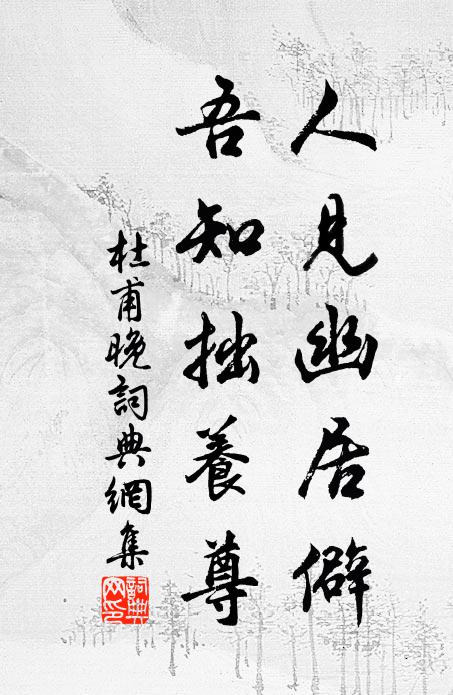 人見幽居僻
吾知拙養尊
杜甫晚詞典網集
詞典